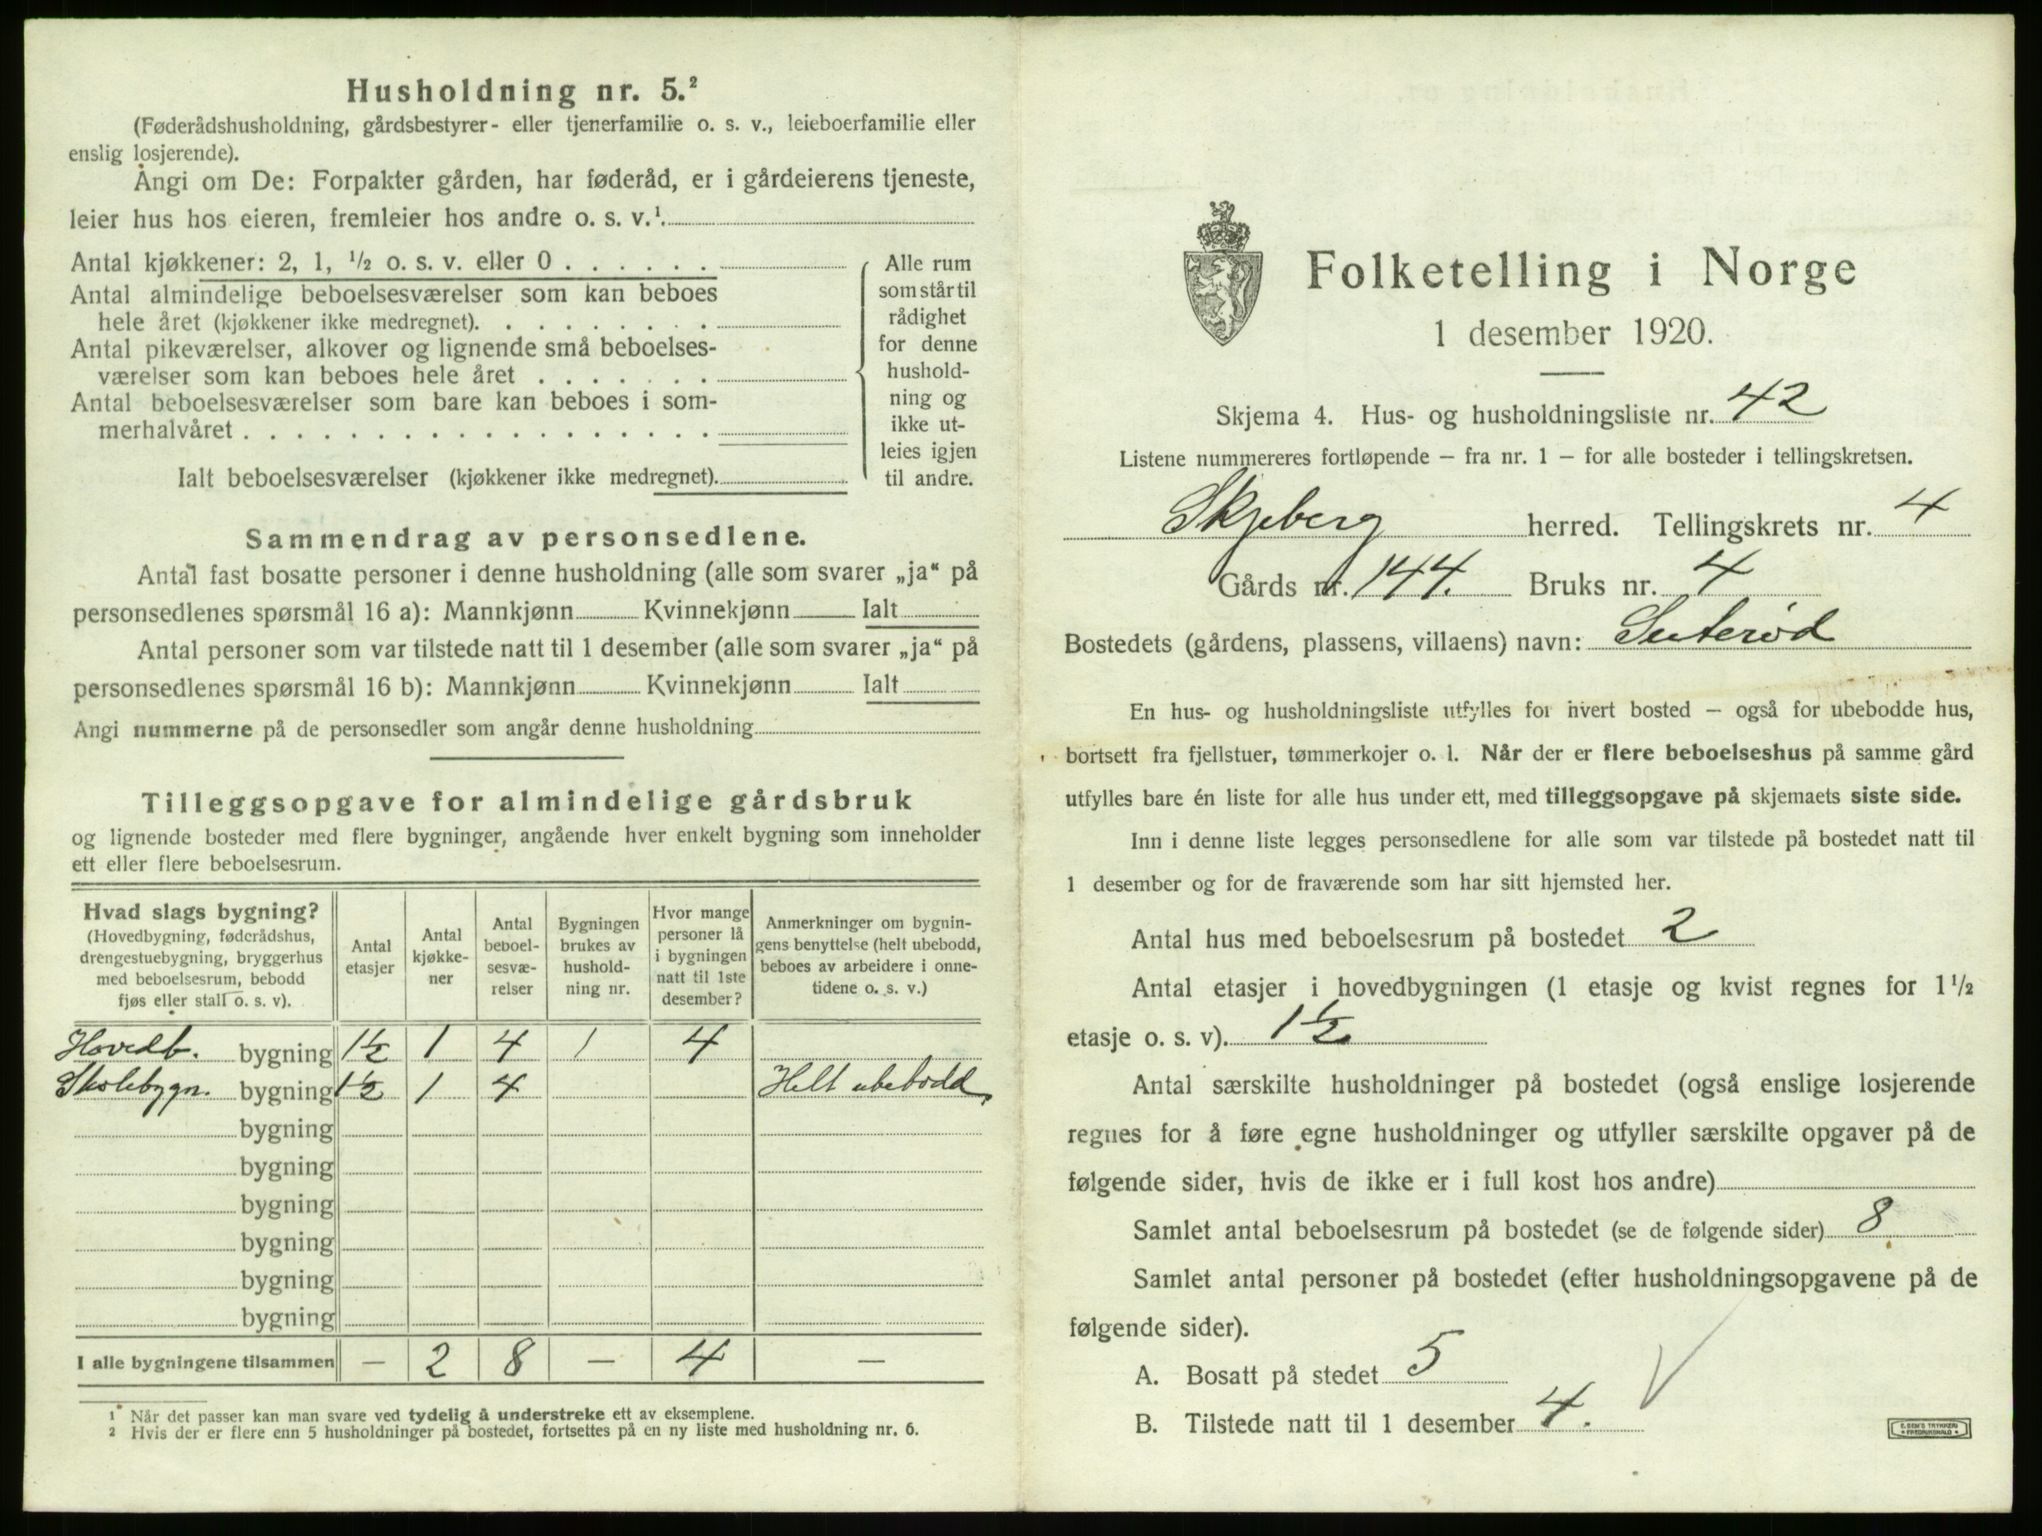 Husholdning nr. 5.²
(Føderådshusholdning, gårdsbestyrer- eller tjenerfamilie o. s. v., leieboerfamilie eller
enslig losjerende).
Angi om De: Forpakter gården, har føderåd, er i gårdeierens tjeneste,
leier hus hos eieren, fremleier hos andre o. s. v.¹
Antal kjøkkener: 2, 1, ½ o. s. v. eller 0 . . . . . .
Antal almindelige beboelsesværelser som kan beboes
hele året (kjøkkener ikke medregnet). . . . . . . . .
Antal pikeværelser, alkover og lignende små beboelses-
værelser som kan beboes hele året . . . . . . .
Antal beboelsesværelser som bare kan beboes i som-
merhalvåret . . . . . . . . . . . . . . . . . .
Ialt beboelsesværelser (kjøkkener ikke medregnet).
Alle rum
som står til
rådighet
for denne
hushold-
ning og
ikke ut-
leies igjen
til andre.
Sammendrag av personsedlene.
Antal fast bosatte personer i denne husholdning (alle som svarer „ja“ på
personsedlenes spørsmål 16 a): Mannkjønn Kvinnekjønn Ialt
Antal personer som var tilstede natt til 1 desember (alle som svarer „ja“ på
personsedlenes spørsmål 16 b): Mannkjønn Kvinnekjønn Ialt
Angi nummerne på de personsedler som angår denne husholdning
Tilleggsopgave for almindelige gårdsbruk
og lignende bosteder med flere bygninger, angående hver enkelt bygning som inneholder
ett eller flere beboelsesrum.
Hvad slags bygning?
(Hovedbygning, føderådshus,
drengestuebygning, bryggerhus
med beboelsesrum, bebodd
fjøs eller stall o. s. v).
Antal
etasjer
Antal
kjøkke-
ner
Antal
beboel-
sesvæ-
relser
Bygningen
brukes av
hushold-
ning nr.
Hvor mange
personer lå
i bygningen
natt til 1ste
desember?
Anmerkninger om bygnin-
gens benyttelse (helt ubebodd,
beboes av arbeidere i onne-
tidene o. s. v.)
Hovedb. bygning 1½ 1 4 1 4
Skolebygn. bygning 1½ 1 4 Helt ubebodd
bygning
bygning
bygning
bygning
bygning
bygning
I alle bygningene tilsammen — 2 8 — 4 —
¹ Når det passer kan man svare ved tydelig å understreke ett av eksemplene.
² Hvis der er flere enn 5 husholdninger på bostedet, fortsettes på en ny liste med husholdning nr. 6.
Folketelling i Norge
1 desember 1920.
Skjema 4. Hus- og husholdningsliste nr. 42
Listene nummereres fortløpende – fra nr. 1 – for alle bosteder i tellingskretsen.
Skjeberg herred. Tellingskrets nr. 4
Gårds nr. 144. Bruks nr. 4
Bostedets (gårdens, plassens, villaens) navn: Suterød
En hus- og husholdningsliste utfylles for hvert bosted – også for ubebodde hus,
bortsett fra fjellstuer, tømmerkojer o. l. Når der er flere beboelseshus på samme gård
utfylles bare én liste for alle hus under ett, med tilleggsopgave på skjemaets siste side.
Inn i denne liste legges personsedlene for alle som var tilstede på bostedet natt til
1 desember og for de fraværende som har sitt hjemsted her.
Antal hus med beboelsesrum på bostedet 2
Antal etasjer i hovedbygningen (1 etasje og kvist regnes for 1½
etasje o. s. v). 1½
Antal særskilte husholdninger på bostedet (også enslige losjerende
regnes for å føre egne husholdninger og utfyller særskilte opgaver på de
følgende sider, hvis de ikke er i full kost hos andre)
Samlet antal beboelsesrum på bostedet (se de følgende sider) 8
Samlet antal personer på bostedet (efter husholdningsopgavene på de
følgende sider).
A. Bosatt på stedet 5
B. Tilstede natt til 1 desember 4.
E. SEM'S TRYKKERI
FREDRIKSHALD